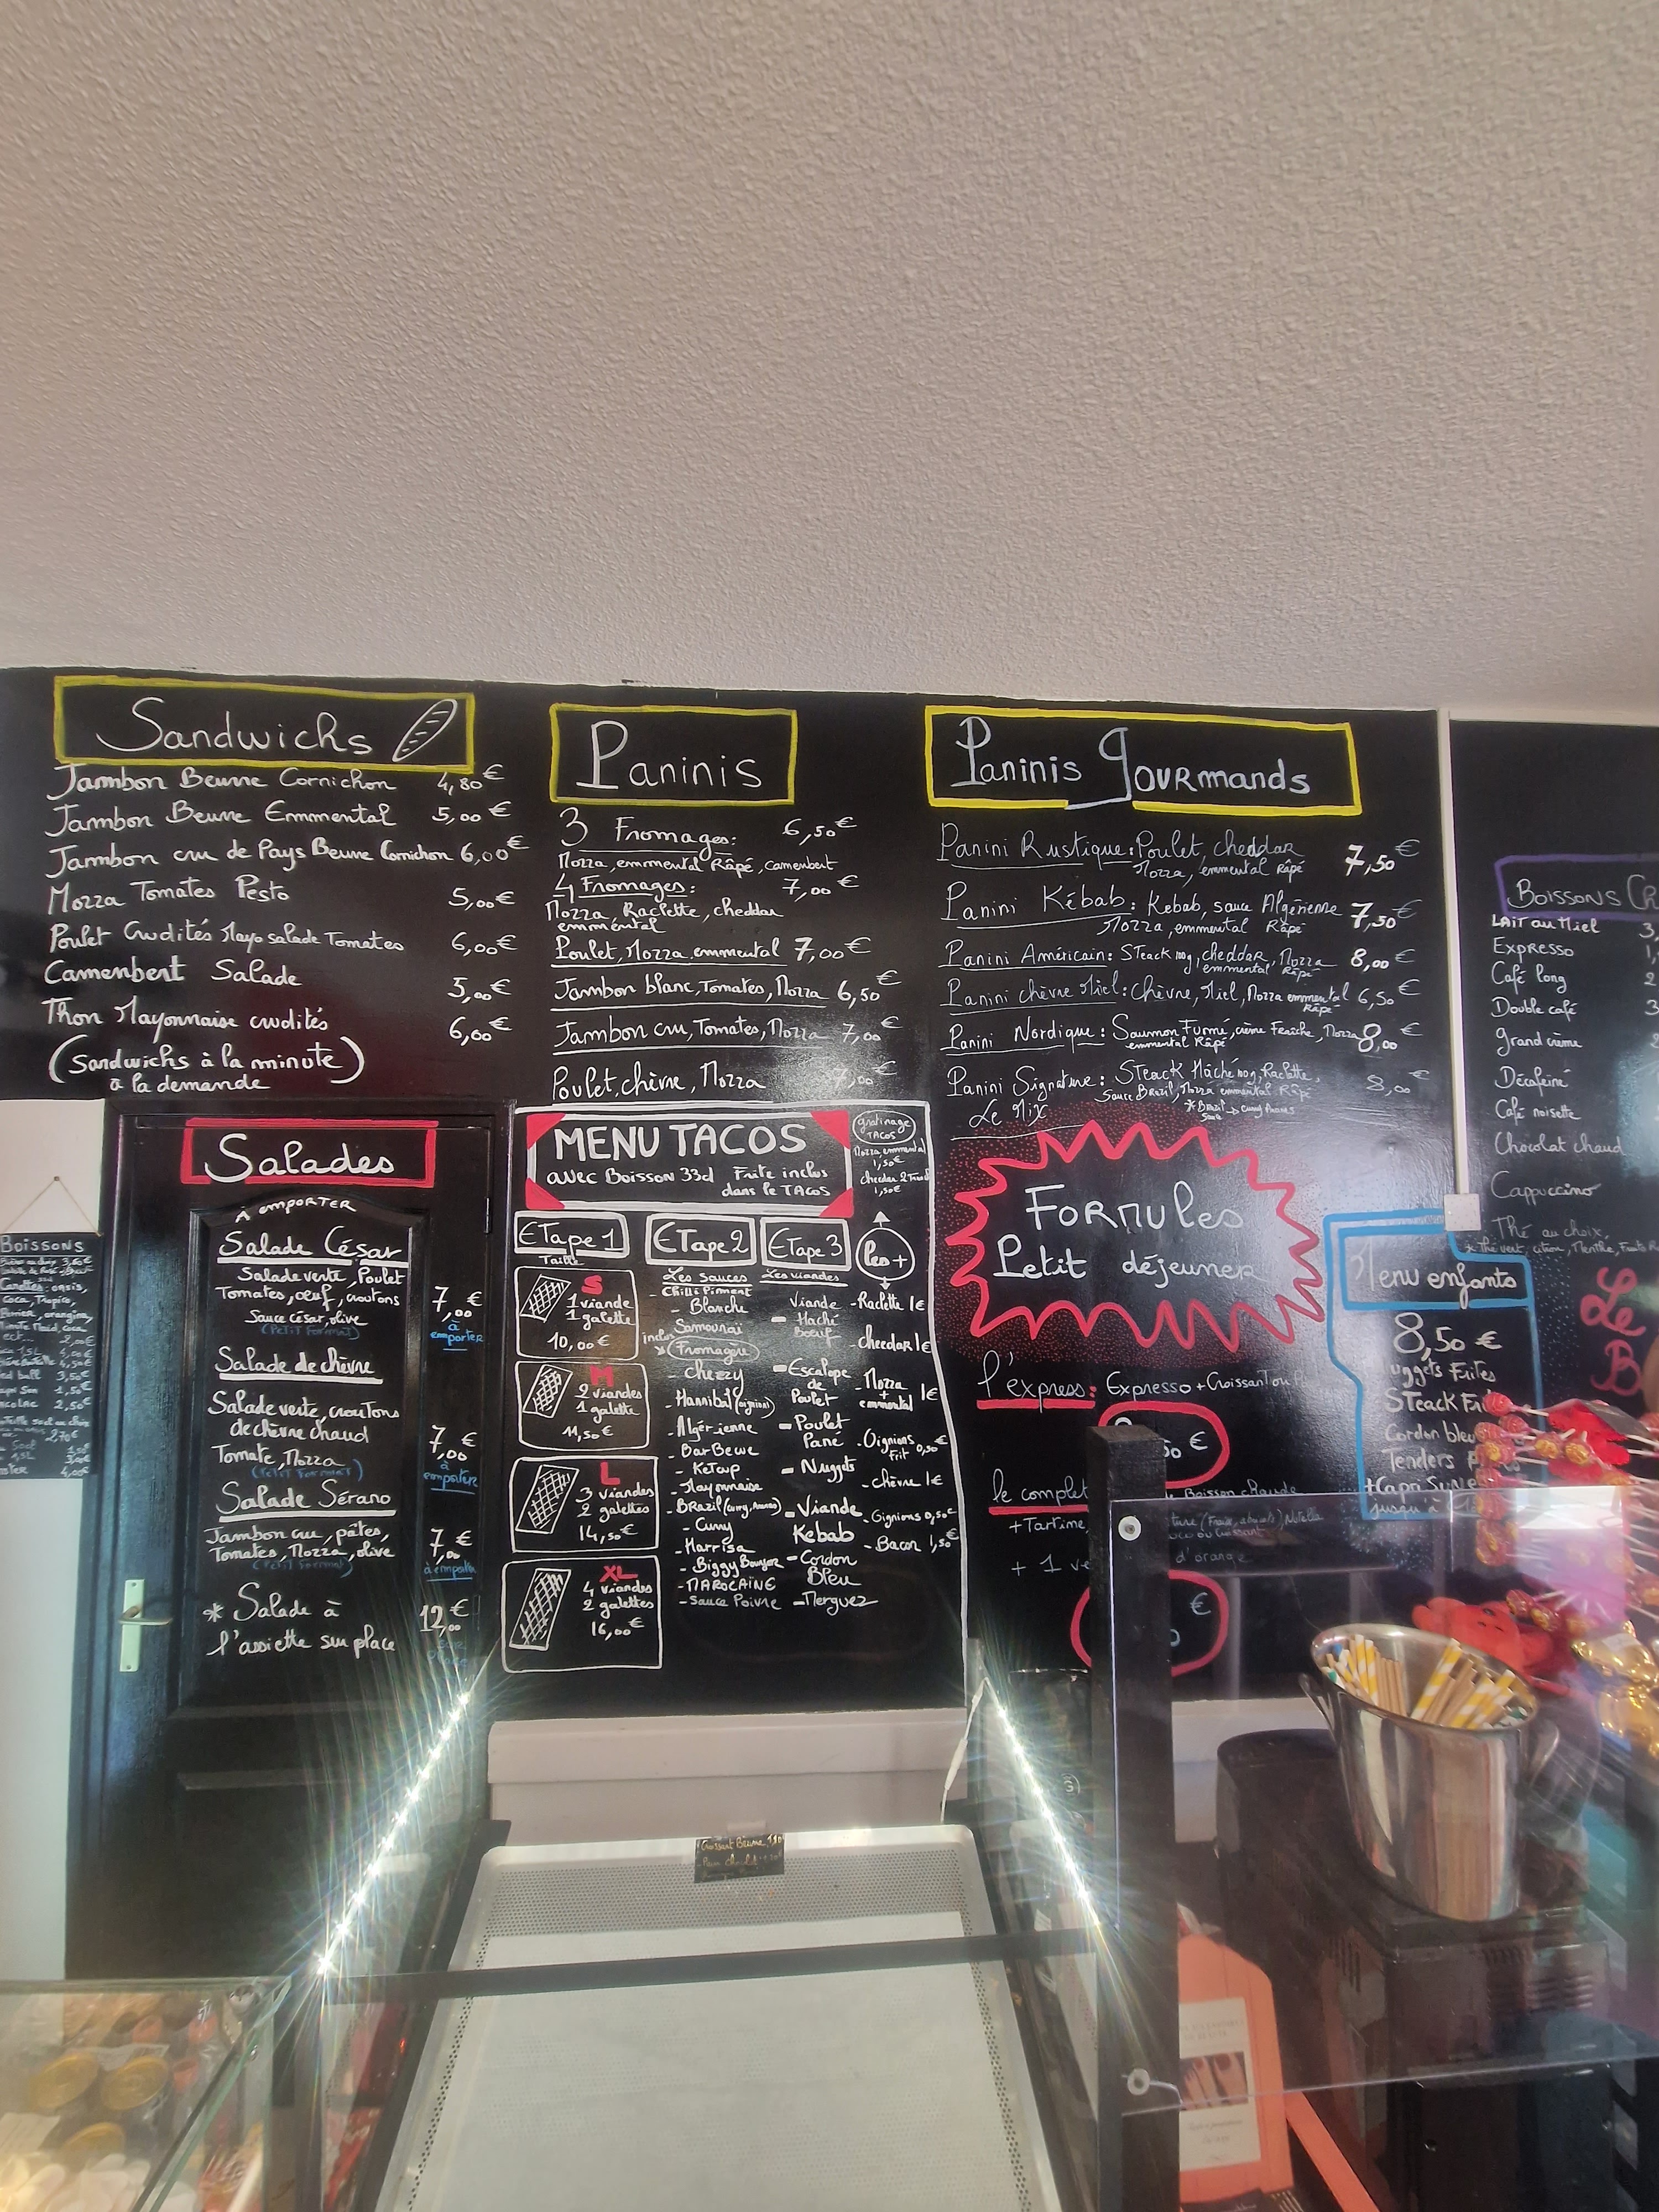 Sandwichs
Jambon Beurre Cornichon 4,80€
Jambon Beurre Emmental 5,00€
Jambon cru de Pays Beurre Cornichon 6,00€
Mozza Tomates Pesto 5,00€
Poulet Crudités Mayo salade Tomates 6,00€
Camembert Salade 5,00€
Thon Mayonnaise crudités 6,00€
(Sandwichs à la minute)
à la demande
Paninis
3 Fromages: 6,50€
Mozza, emmental Râpé, camembert
4 Fromages: 7,00€
Mozza, Raclette, cheddar
emmental
Poulet, Mozza, emmental 7,00€
Jambon blanc, Tomates, Mozza 6,50€
Jambon cru, Tomates, Mozza 7,00€
Poulet, chèvre, Mozza 7,00€
Paninis gourmands
Panini Rustique: Poulet, cheddar 7,50€
Mozza, emmental Râpé
Panini Kébab: Kebab, sauce Algérienne 7,50€
Mozza, emmental Râpé
Panini Américain: Steack 100g, cheddar, Mozza 8,00€
emmental Râpé
Panini chèvre Miel: Chèvre, Miel, Mozza emmental 6,50€
Râpé
Panini Nordique: Saumon Fumé, crème Fraîche, Mozza 8,00€
emmental Râpé
Panini Signature: Steack Hâché 100g, Raclette, 8,00€
Le Mix Sauce Brazil, Mozza emmental Râpé
*Brazil → curry Ananas
Sauce
Salades
A emporter
Salade César
Salade verte, Poulet
Tomates, oeuf, croutons
Sauce César, olive
(Petit Format)
7,00€
à
emporter
Salade de chèvre
Salade verte, crouTons
de chèvre chaud
Tomate, Mozza
(Petit Format)
7,00€
à
emporter
Salade Sérano
Jambon cru, pâtes,
Tomates, Mozza, olive
(Petit Format)
7,00€
à emporter
* Salade à
l'assiette sur place
12,00€
sur
place
MENU TACOS
avec Boisson 33cl Frite inclus
dans le TACOS
gratinage
TACOS
Mozza, emmental
1,50€
1,50€
ETape 1
Taille
S
1 viande
1 galette
10,00€
M
2 viandes
1 galette
11,50€
L
3 viandes
2 galettes
14,50€
XL
4 viandes
2 galettes
16,00€
ETape 2
Les sauces
- Chilli Piment
- Blanche
Samouraï
inclus
Fromagère
- chezzy
- Hannibal (oignons)
- Algérienne
- BarBecue
- Ketcup
- Mayonnaise
- BRAZil (curry, Ananas)
- Curry
- Harrisa
- Biggy Bourger
- MAROCAÏNE
- sauce Poivre
ETape 3
Les viandes
- Viande
Haché
Boeuf
- Escalope
de
Poulet
- Poulet
Pané
- Nuggets
- Viande
Kebab
- Cordon
Bleu
- Merguez
Les +
- Raclette 1€
- Cheedar 1€
- Mozza
+
emmental 1€
- Oignions
Frit 0,50€
- chèvre 1€
- Oignions 0,50€
- Bacon 1,50€
Formules
Petit déjeuner
l'express: Expresso + Croissant ou
€
le complet
Boisson chaude
+ Tartine,
+ 1 ve
d'orange
€
Menu enfants
8,50 €
uggets Frites
Steack Fri
Cordon bleu
Tenders
jusqu'à
Boissons
LAIT au Miel
Expresso
Café long
Double café
grand crème
Décafeiné
Café noisette
Chocolat chaud
Cappuccino
Thé au choix,
Thé vert, citron, Menthe, Fruits
Le
B
BOISSONS
Canettes: oasis,
Coca, Tropico,
Perrier, orangina,
ect... 2,00€
4,00€
4,50€
3,50€
1,50€
2,50€
2,70€
4,00€